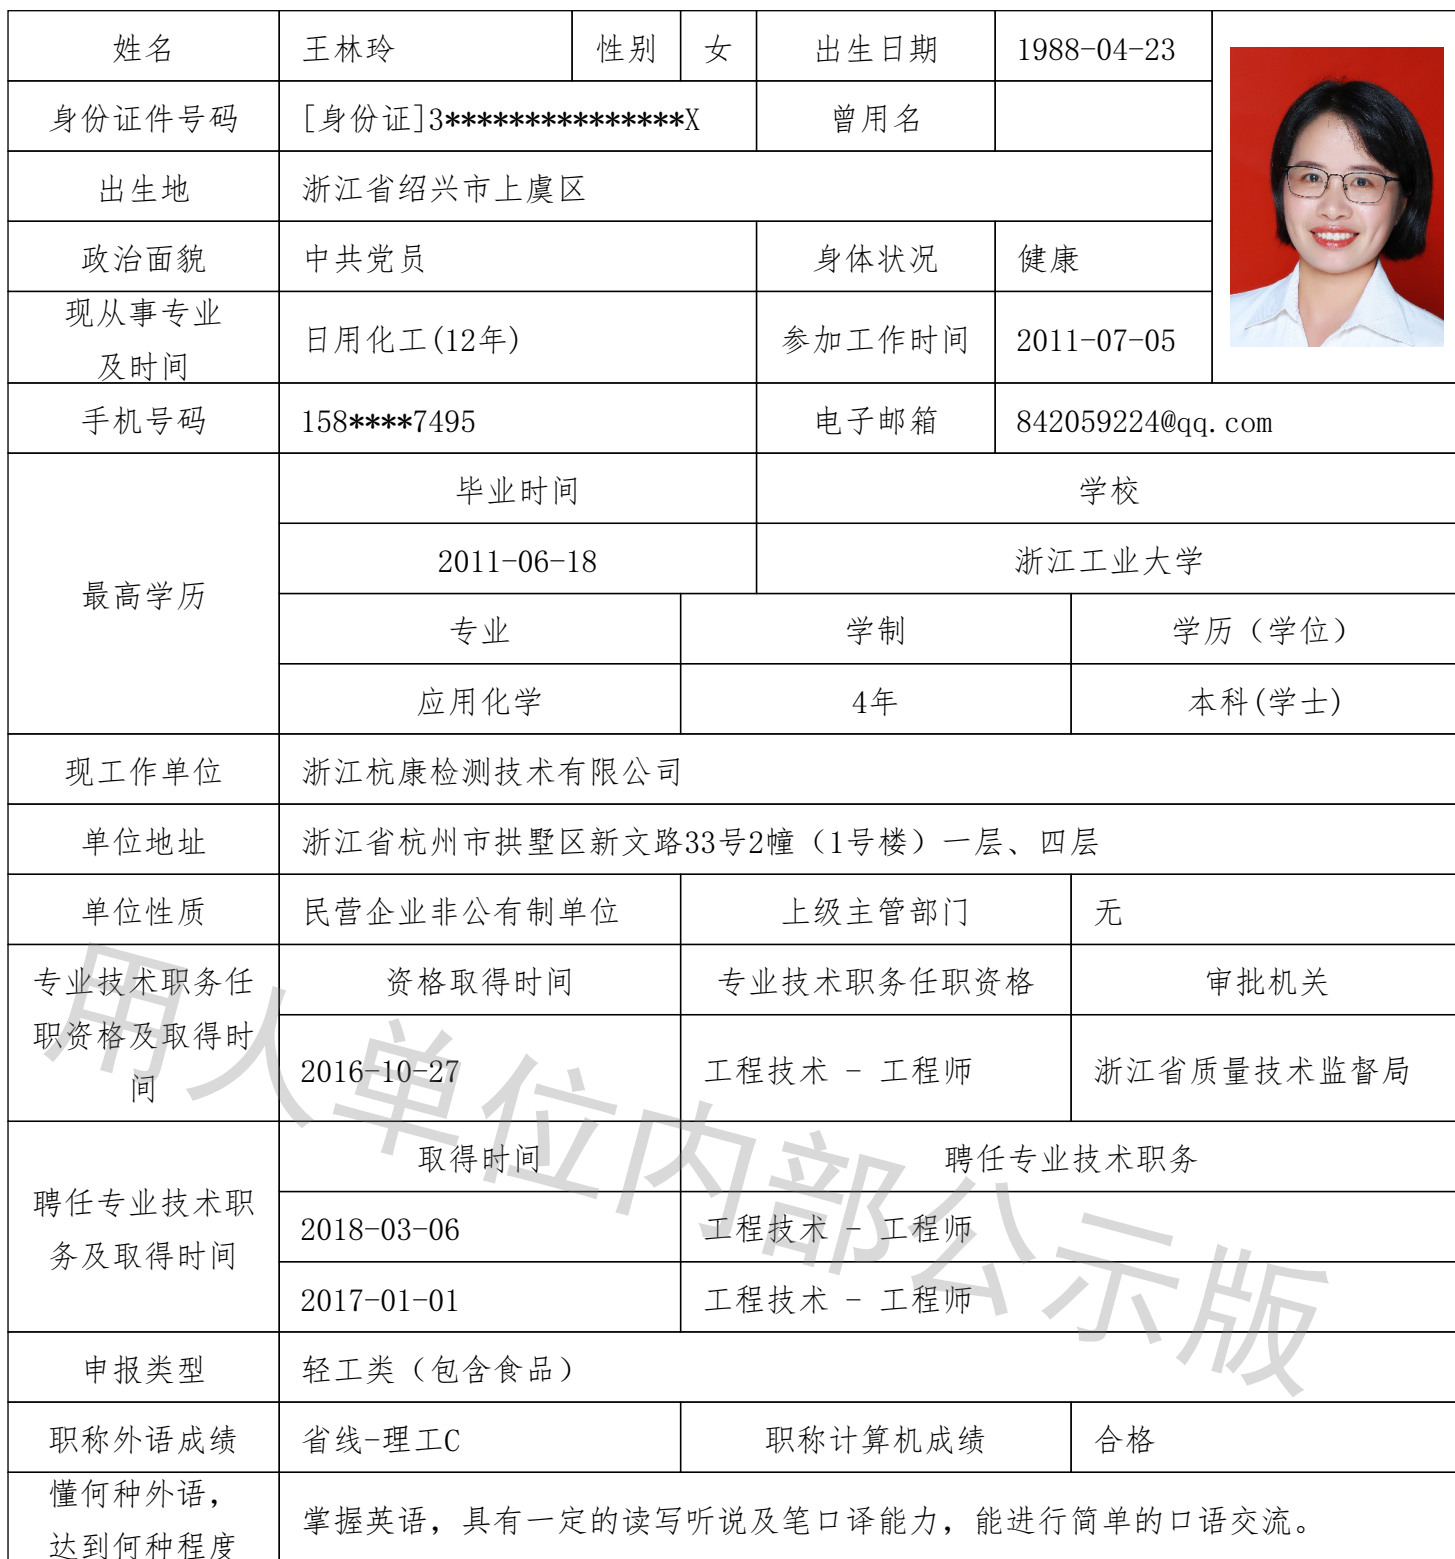 姓名 王林玲 性别 女 出生日期 1988-04-23
身份证件号码 [身份证]3***************X 曾用名
出生地 浙江省绍兴市上虞区
政治面貌 中共党员 身体状况 健康
现从事专业
及时间 日用化工(12年) 参加工作时间 2011-07-05
手机号码 158****7495 电子邮箱 842059224@qq.com
最高学历
毕业时间 学校
2011-06-18 浙江工业大学
专业 学制 学历（学位）
应用化学 4年 本科(学士)
现工作单位 浙江杭康检测技术有限公司
单位地址 浙江省杭州市拱墅区新文路33号2幢（1号楼）一层、四层
单位性质 民营企业非公有制单位 上级主管部门 无
专业技术职务任
职资格及取得时
间
资格取得时间 专业技术职务任职资格 审批机关
2016-10-27 工程技术 - 工程师 浙江省质量技术监督局
聘任专业技术职
务及取得时间
取得时间 聘任专业技术职务
2018-03-06 工程技术 - 工程师
2017-01-01 工程技术 - 工程师
申报类型 轻工类（包含食品）
职称外语成绩 省线-理工C 职称计算机成绩 合格
懂何种外语，
达到何种程度
掌握英语，具有一定的读写听说及笔口译能力，能进行简单的口语交流。
用人单位内部公示版